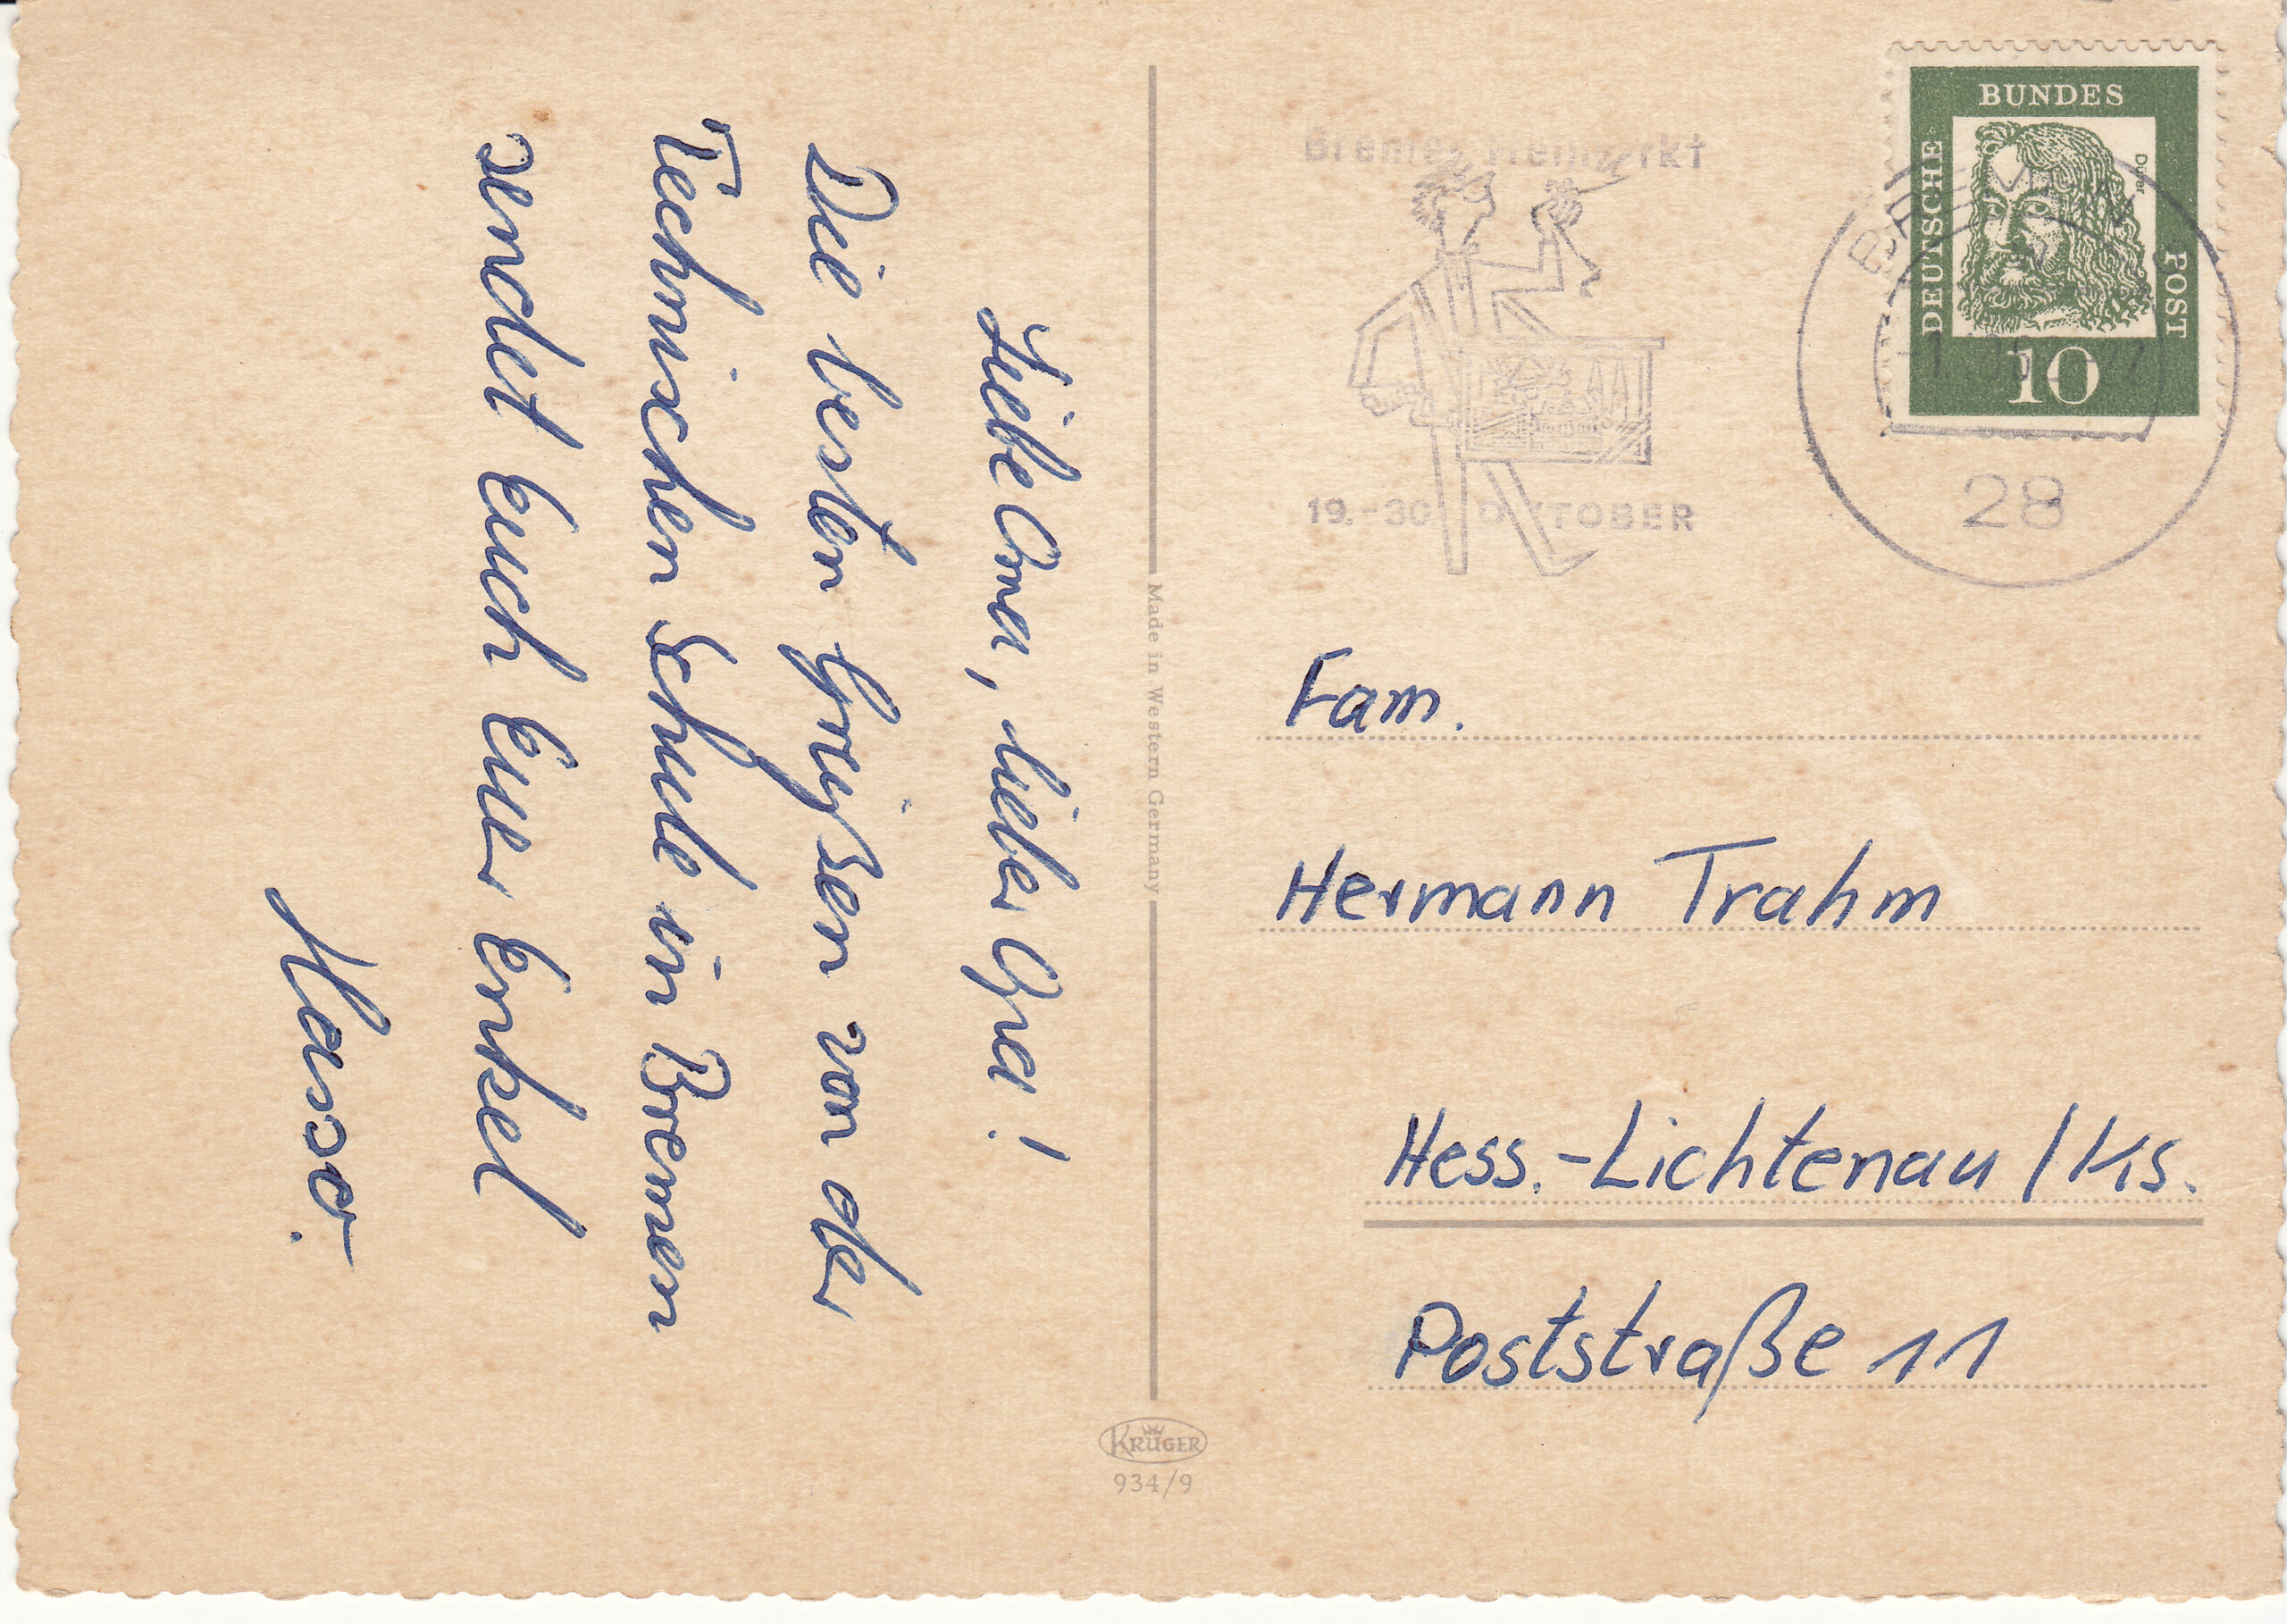 Liebe Oma, lieber Opa!
Die besten Grüßen von der
Technischen Schule in Bremen
sendet Euch Euer Enkel
Hasso.
Made in Western Germany
KRÜGER
934/9
Bremer Freimarkt
19.-30. OKTOBER
BUNDES
DEUTSCHE
POST
Dürer
10
BREMEN
28
Fam.
Hermann Trahm
Hess.-Lichtenau / Ks.
Poststraße 11